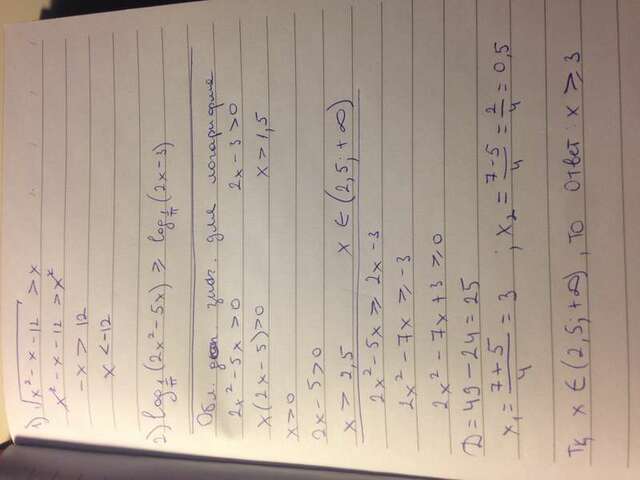 1) √(x² - x - 12) > x
x² - x - 12 > x²
-x > 12
x < -12
2) log_{1/π}(2x² - 5x) ≥ log_{1/π}(2x - 3)
Обл. доп. знач. для логарифма
2x² - 5x > 0 2x - 3 > 0
x(2x - 5) > 0 x > 1,5
x > 0
2x - 5 > 0
x > 2,5 x ∈ (2,5; +∞)
2x² - 5x ≥ 2x - 3
2x² - 7x ≥ -3
2x² - 7x + 3 ≥ 0
D = 49 - 24 = 25
x₁ = (7+5)/4 = 3 ; x₂ = (7-5)/4 = 2/4 = 0,5
Тк x ∈ (2,5; +∞), то ответ: x ≥ 3